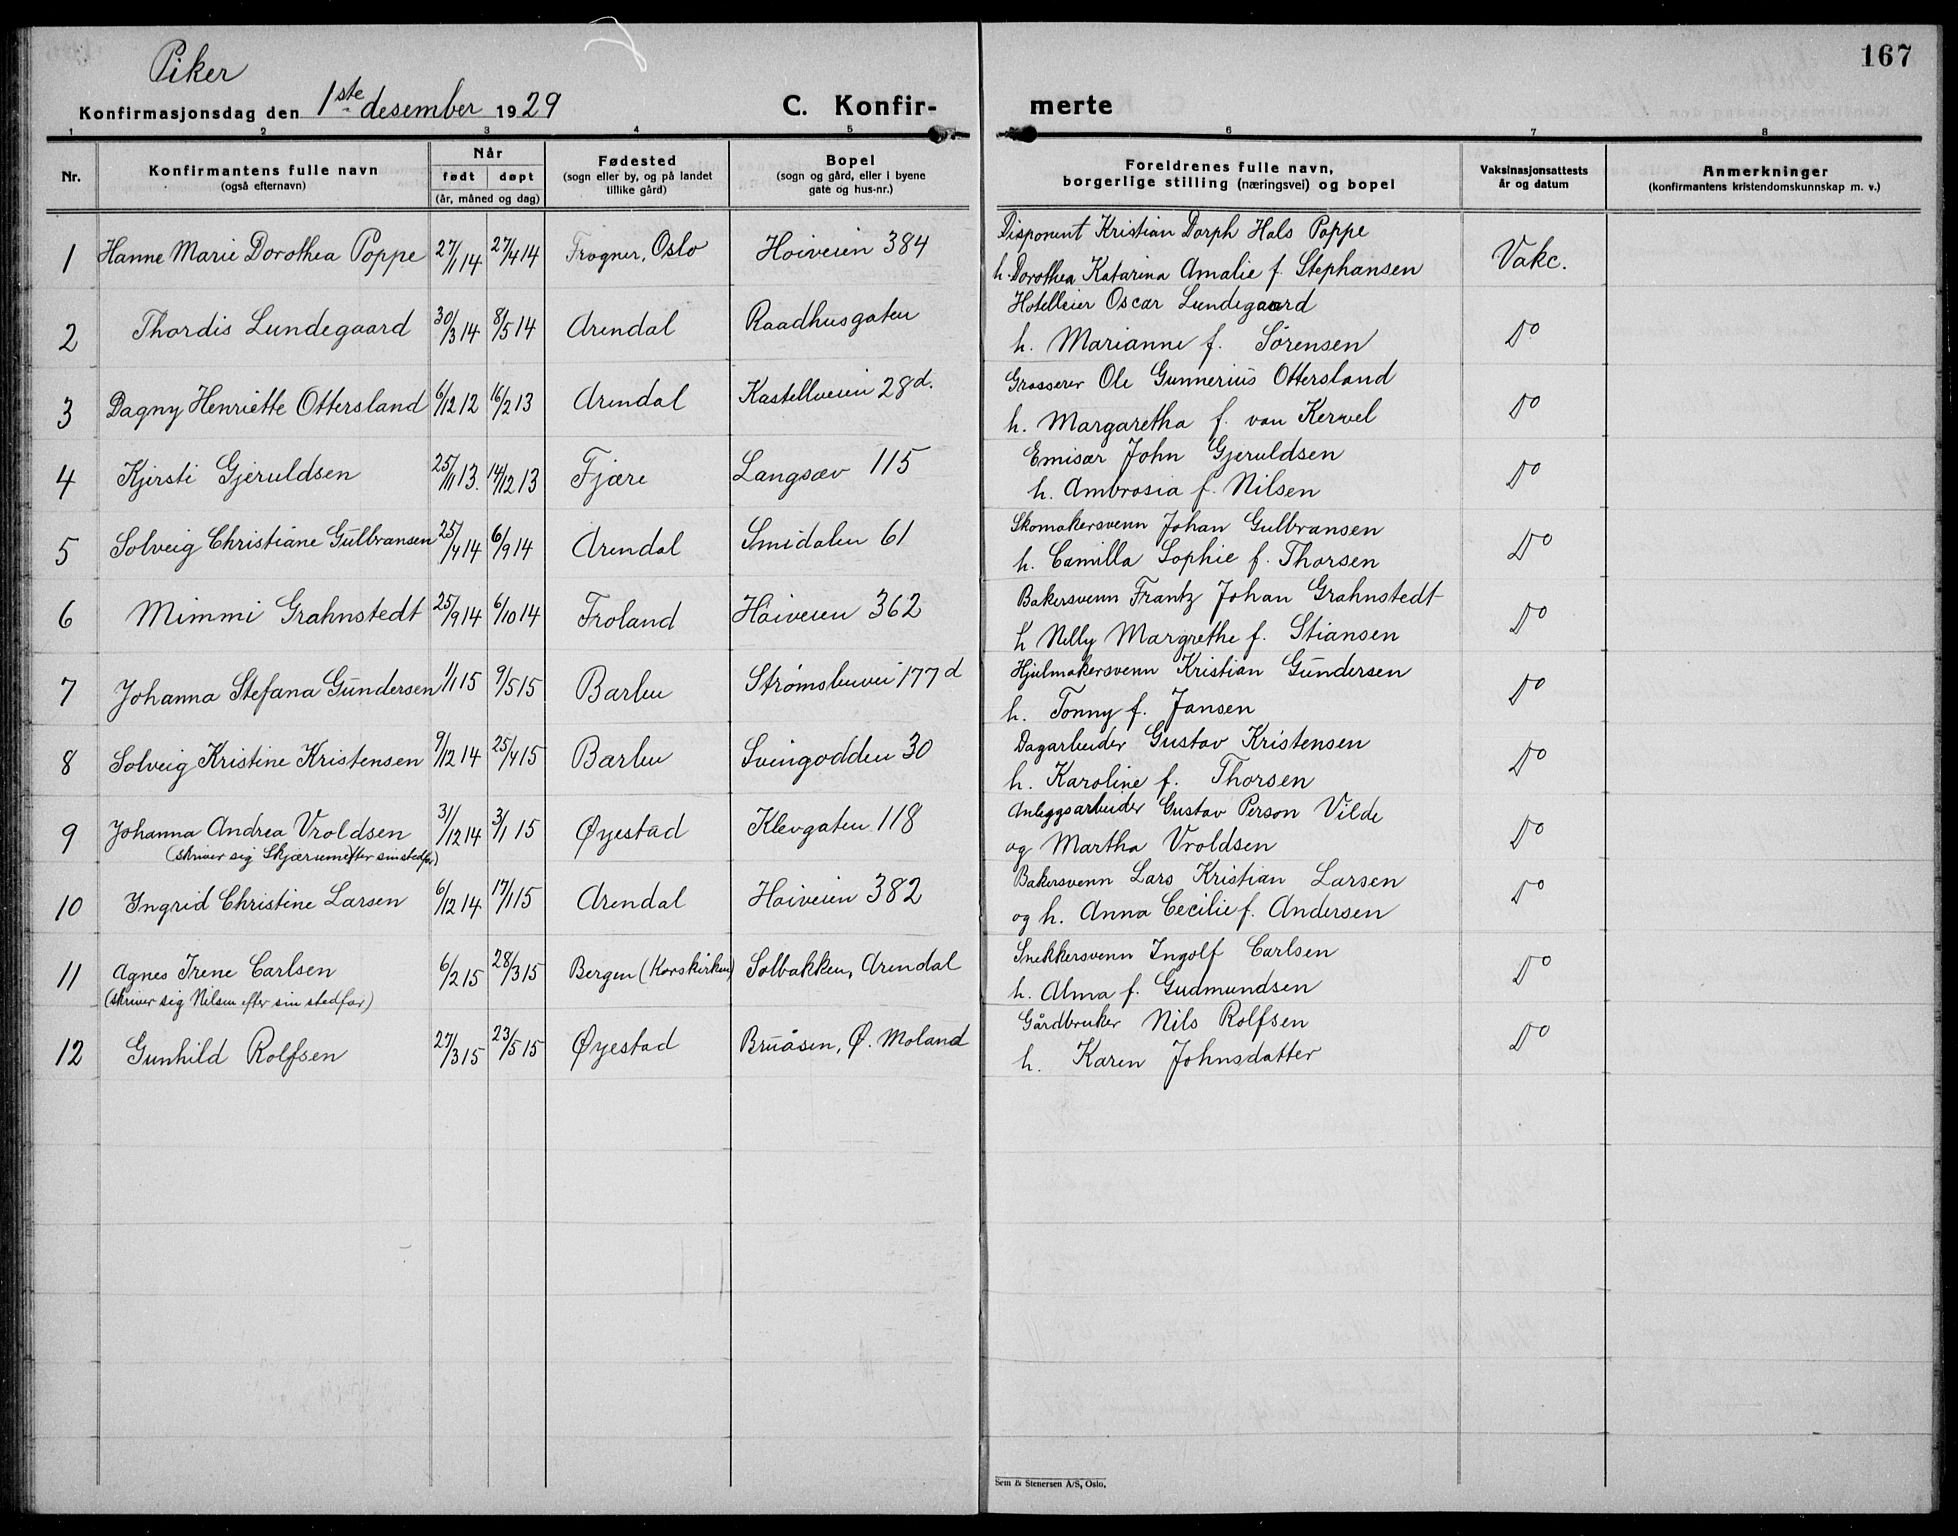 Piker
167
Konfirmasjonsdag den 1ste desember 1929
C. Konfir- merte
1 2 3 4 5 6 7 8
Nr.
Konfirmantens fulle navn
(også efternavn)
Når
født døpt
(år, måned og dag)
Fødested
(sogn eller by, og på landet
tillike gård)
Bopel
(sogn og gård, eller i byene
gate og hus-nr.)
Foreldrenes fulle navn,
borgerlige stilling (næringsvei) og bopel
Vaksinasjonsattests
år og datum
Anmerkninger
(konfirmantens kristendomskunnskap m. v.)
1 Hanne Marie Dorothea Poppe 27/1 14 27/4 14 Frogner, Oslo Hoiveien 384 Disponent Kristian Dorph Hals Poppe Vakc.
h. Dorothea Katarina Amalie f. Stephansen
2 Thordis Lundegaard 30/3 14 8/5 14 Arendal Raadhusgaten Hotelleier Oscar Lundegaard Do
h. Marianne f. Sörensen
3 Dagny Henriette Ottersland 6/12 12 16/2 13 Arendal Kastellveien 28 d. Grosserer Ole Gunnerius Ottersland Do
h. Margaretha f. van Kervel
4 Kjersti Gjeruldsen 25/11 13. 14/12 13 Fjære Langsæv 115 Emisær John Gjeruldsen Do
h. Ambrosia f. Nilsen
5 Solveig Christiane Gulbransen 25/4 14 6/9 14 Arendal Smidalen 61 Skomakersvenn Johan Gulbransen Do
h. Camilla Sophie f. Thorsen
6 Mimmi Grahnstedt 25/9 14 6/10 14 Froland Hoiveien 362 Bakersvenn Frantz Johan Grahnstedt Do
h Nelly Margrethe f. Stiansen
7 Johanna Stefana Gundersen 1/1 15 9/5 15 Barbu Strømsbuvei 177 d Hjulmakersvenn Kristian Gundersen Do
h. Tonny f. Jansen
8 Solveig Kristine Kristensen 9/12 14 25/4 15 Barbu Svingodden 30 Dagarbeider Gustav Kristensen Do
h. Karoline f. Thorsen
9 Johanna Andrea Vroldsen 31/12 14 3/1 15 Øyestad Klevgaten 118 Anleggsarbeider Gustav Person Vilde Do
(skriver sig Skjærum efter sin stedfar) og Martha Vroldsen
10 Ingrid Christine Larsen 6/12 14 17/1 15 Arendal Hoiveien 382 Bakersvenn Lars Kristian Larsen Do
og h. Anna Cecilie f. Andersen
11 Agnes Irene Carlsen 6/2 15 28/3 15 Bergen (Korskirken) Solbakken, Arendal Snekkersvenn Ingolf Carlsen Do
(skriver sig Nilsen efter sin stedfar) h. Alma f. Gudmundsen
12 Gunhild Rolfsen 27/3 15 23/5 15 Øyestad Bruåsen, Ø. Moland Gårdbruker Nils Rolfsen Do
h. Karen Johnsdatter
Sem & Stenersen A/S, Oslo.